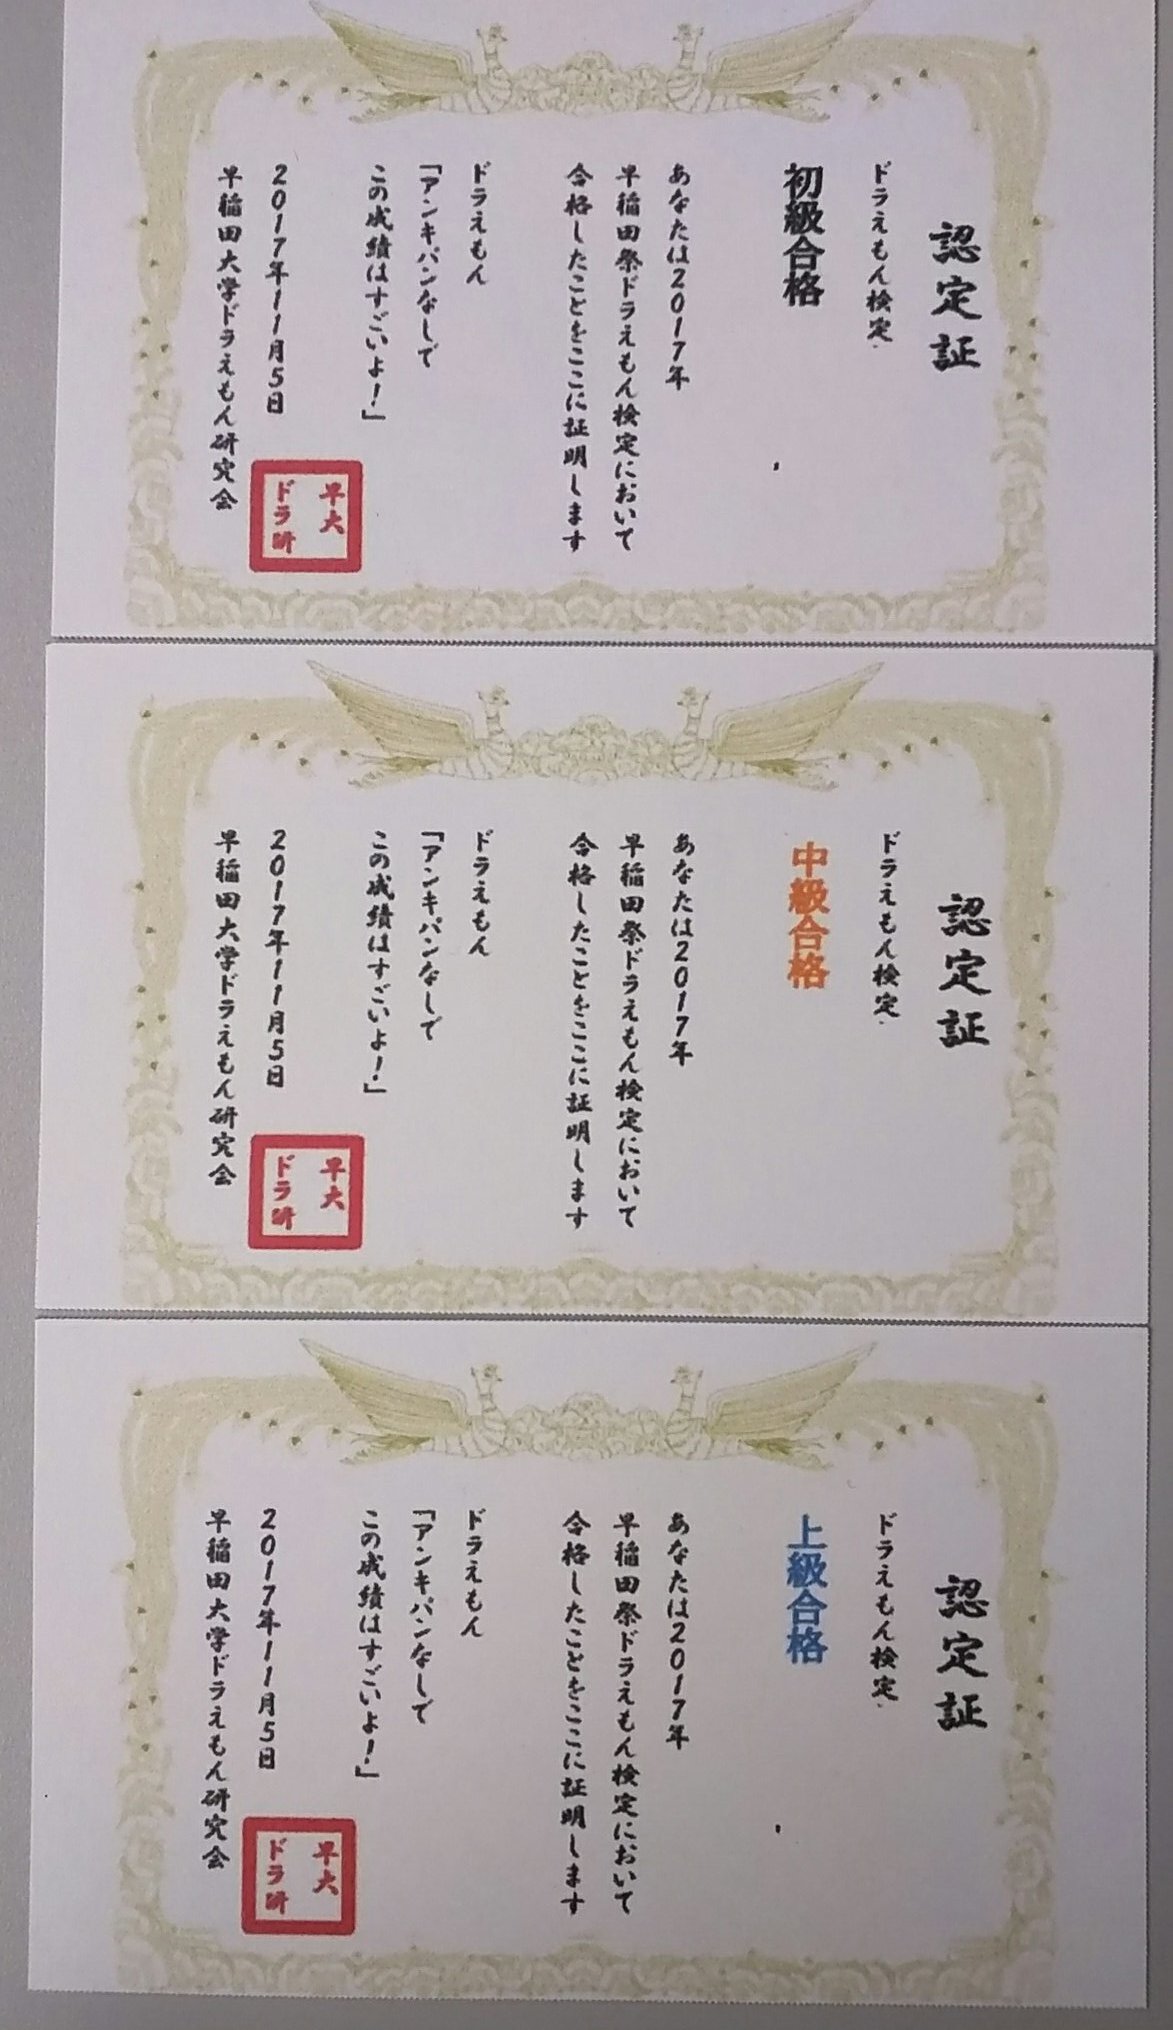 認定証
ドラえもん検定
初級合格
あなたは2017年
早稲田祭ドラえもん検定において
合格したことをここに証明します
ドラえもん
「アンキパンなしで
この成績はすごいよ！」
2017年11月5日
早稲田大学ドラえもん研究会
早大
ドラ研
認定証
ドラえもん検定
中級合格
あなたは2017年
早稲田祭ドラえもん検定において
合格したことをここに証明します
ドラえもん
「アンキパンなしで
この成績はすごいよ！」
2017年11月5日
早稲田大学ドラえもん研究会
早大
ドラ研
認定証
ドラえもん検定
上級合格
あなたは2017年
早稲田祭ドラえもん検定において
合格したことをここに証明します
ドラえもん
「アンキパンなしで
この成績はすごいよ！」
2017年11月5日
早稲田大学ドラえもん研究会
早大
ドラ研